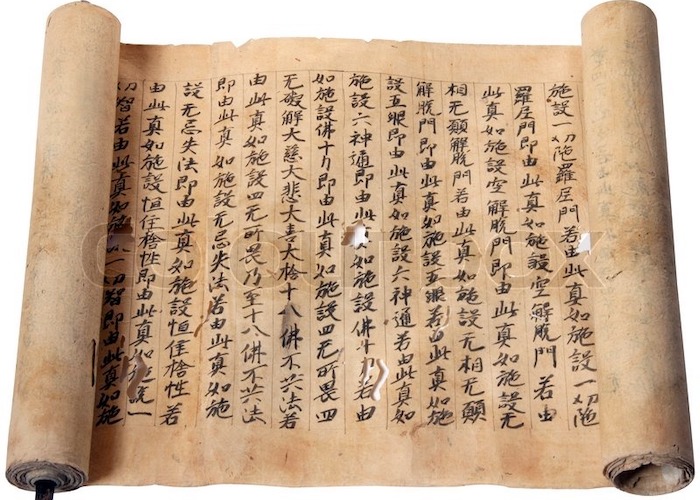 施設一切陁羅尼門若由此真如施設一切陁
羅尼門即由此真如施設空解脫門若由
此真如施設空解脫門即由此真如施設无
相无願解脫門若由此真如施設无相无願
解脫門即由此真如施設五眼若由此真如施
設五眼即由此真如施設六神通若由此真如
施設六神通即由此真如施設佛十力若由
如施設佛十力即由此真如施設四无所畏四
无礙解大慈大悲大喜大捨十八佛不共法若
由此真如施設四无所畏乃至十八佛不共法
即由此真如施設无忘失法若由此真如施
設无忘失法即由此真如施設恒住捨性若
由此真如施設恒住捨性即由此真如施設一
切智若由此真如施設一切智即由此真如施